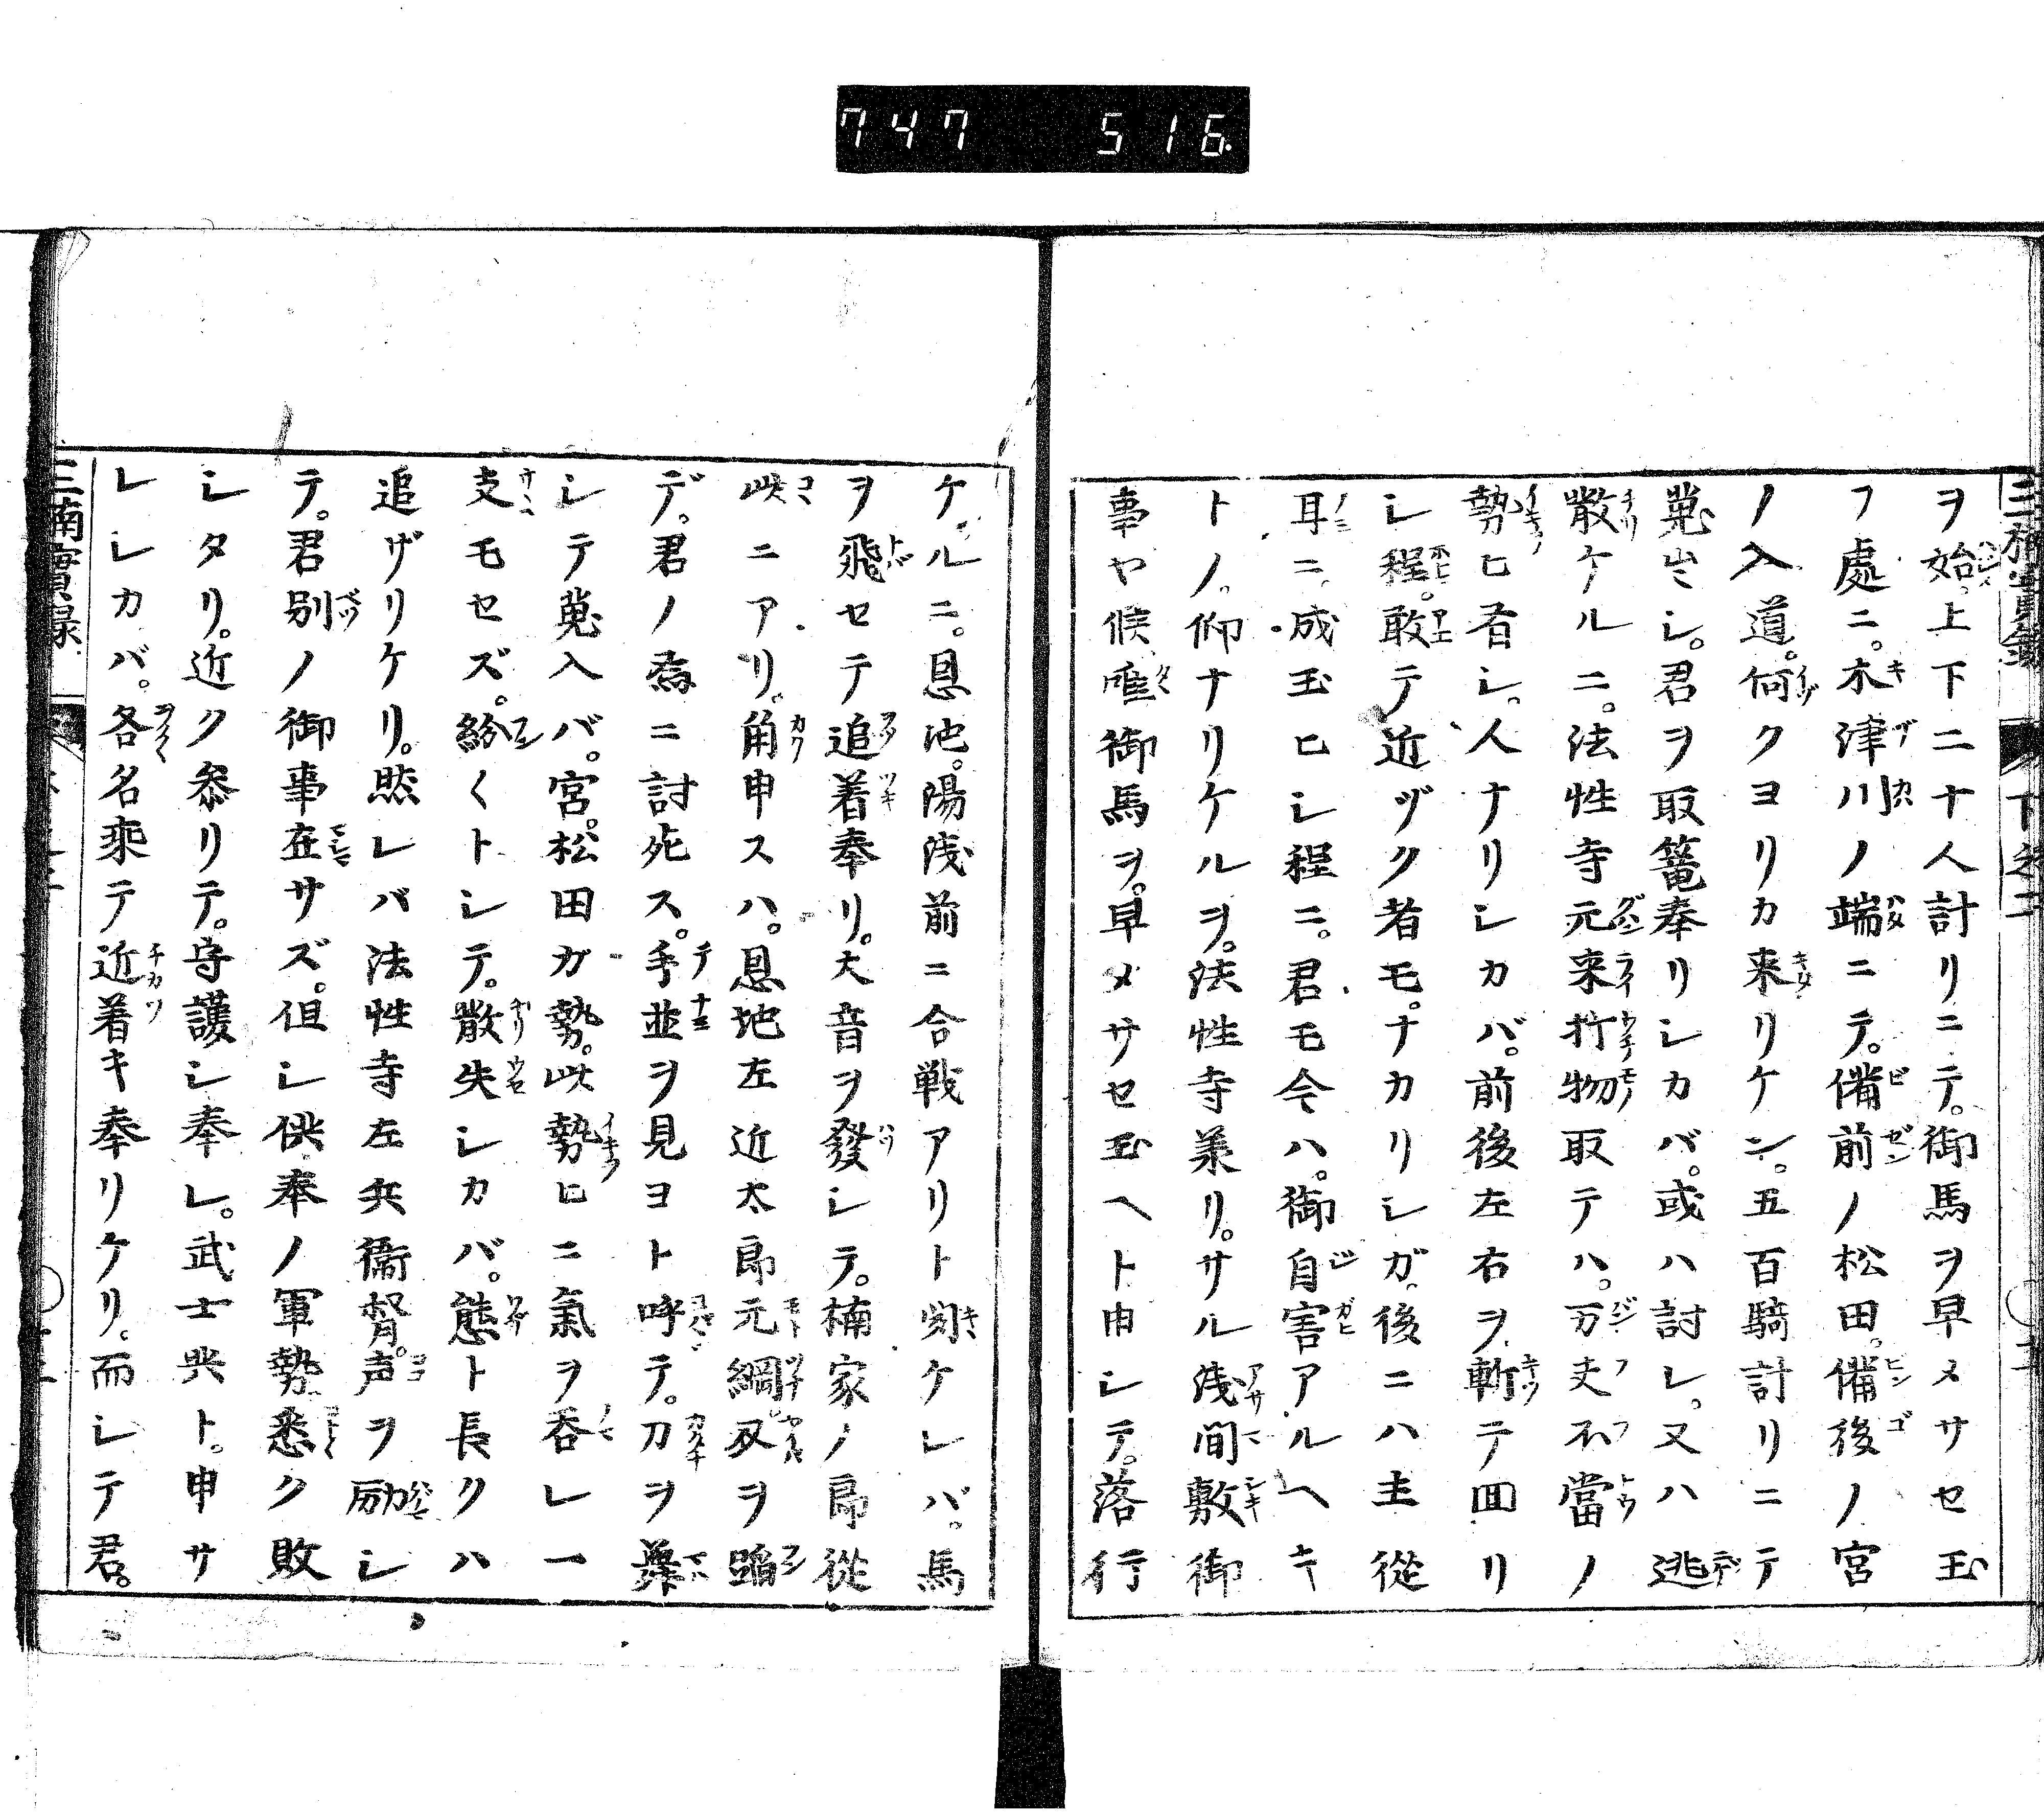 747 516
ヲ始。上下二十人計リニテ。御馬ヲ早メサセ玉
フ處ニ。木津川ノ端ニテ。備前ノ松田。備後ノ宮
ノ入道。何クヨリカ来リケン。五百騎計リニテ
蒐出シ。君ヲ取篭奉リシカバ。或ハ討レ。又ハ逃
散ケルニ。法性寺元来打物取テハ。万夫不當ノ
勢ヒ有シ。人ナリシカバ。前後左右ヲ斬テ回リ
シ程。敢テ近ヅク者モ。ナカリシガ。後ニハ主從
耳ニ。成玉ヒシ程ニ。君モ今ハ。御自害アルヘキ
トノ。仰ナリケルヲ。法性寺兼リ。サル浅間敷御
事ヤ候唯御馬ヲ。早メサセ玉ヘト申シテ。落行
ケルニ。恩池。陽浅前ニ合戦アリト聞ケレバ。馬
ヲ飛セテ追着奉リ。大音ヲ發シテ。楠家ノ郎從
此ニアリ。角申スハ。恩地左近太郎元綱。双ヲ蹈
デ。君ノ為ニ討死ス。手並ヲ見ヨト呼テ。刀ヲ舞
シテ蒐入バ。宮。松田カ勢。此勢ヒニ氣ヲ呑レ一
支モセズ。紛々トシテ。散失シカバ。態ト長クハ
追ザリケリ。然レバ法性寺左兵衞督。声ヲ励シ
テ。君別ノ御事在サズ。但シ供奉ノ軍勢悉ク敗
シタリ。近ク参リテ。守護シ奉レ。武士共ト。申サ
レシカバ。各名乘テ近着キ奉リケリ。而シテ君。
三楠實録